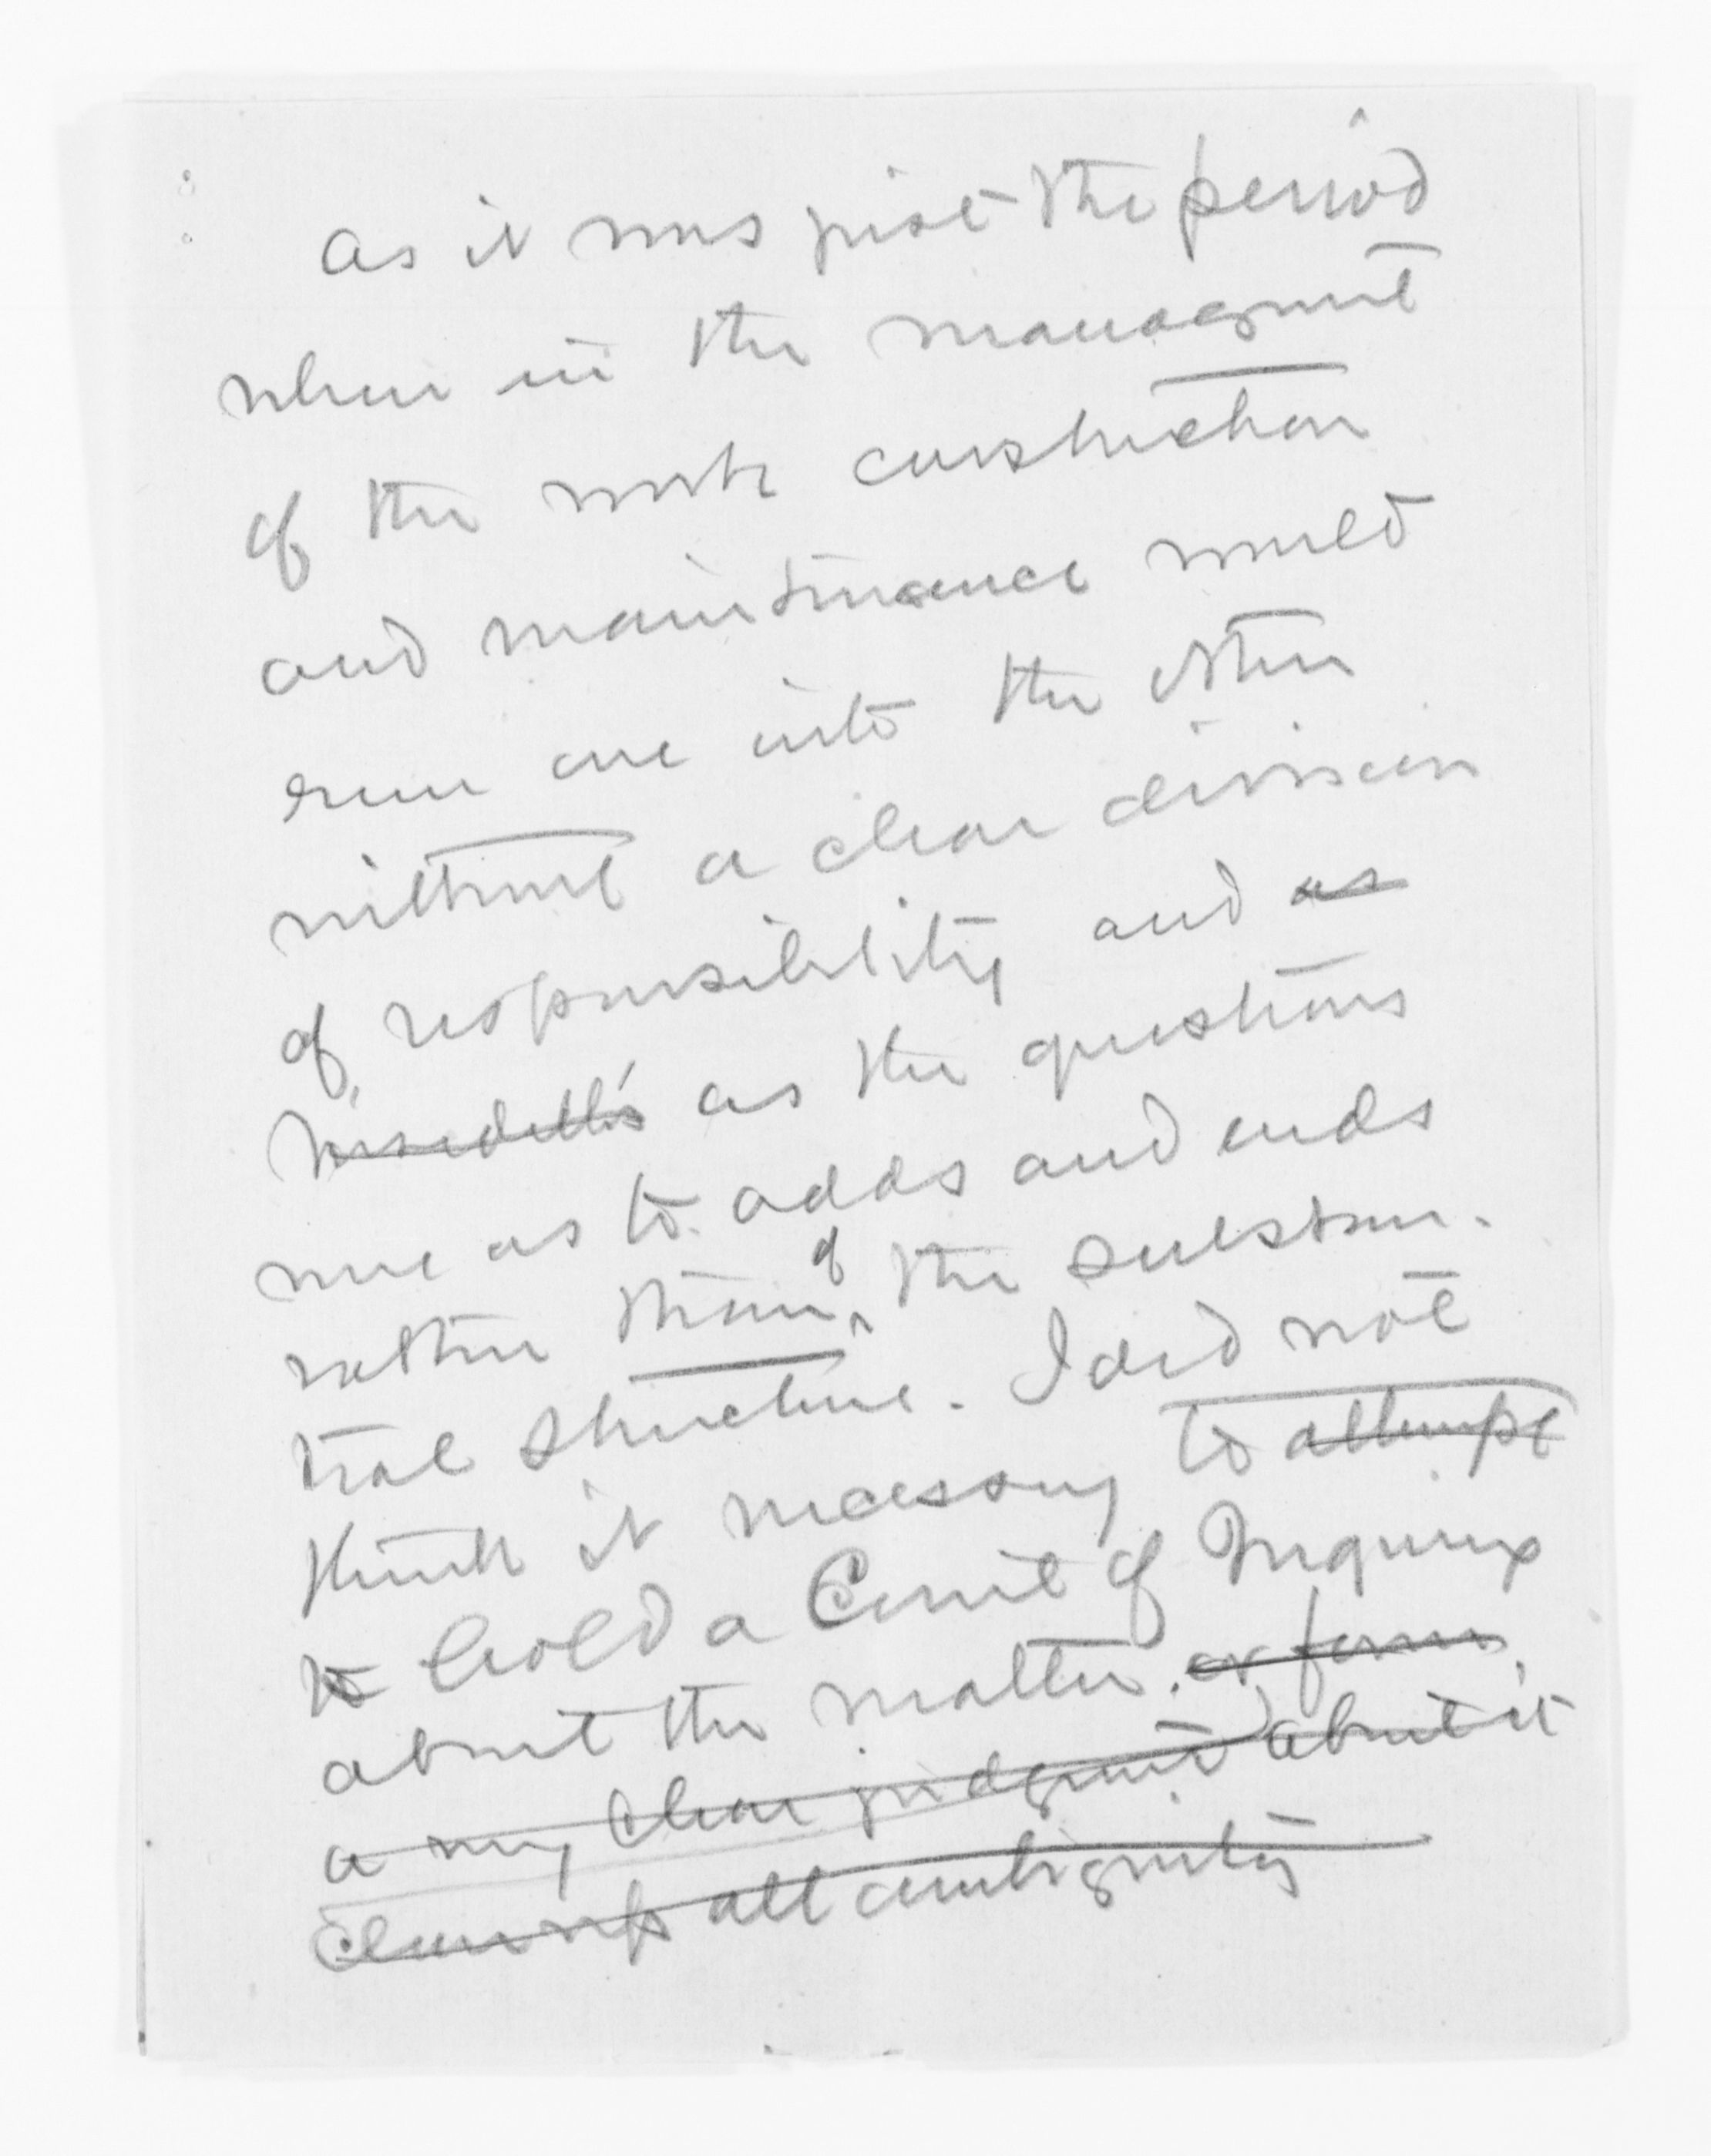 as it was just the period
when in the managment
of the work construction
and maintinance would
run one into the other
without a clear division
of responsibility and as
as the questions
were as to odds and ends
rather than of the substan-
tial structure. I did not
think it necessary to attempt
to hold a Court of Inquiry
about the matter. or form
a very clear judgment about it
Clear up all ambiguity